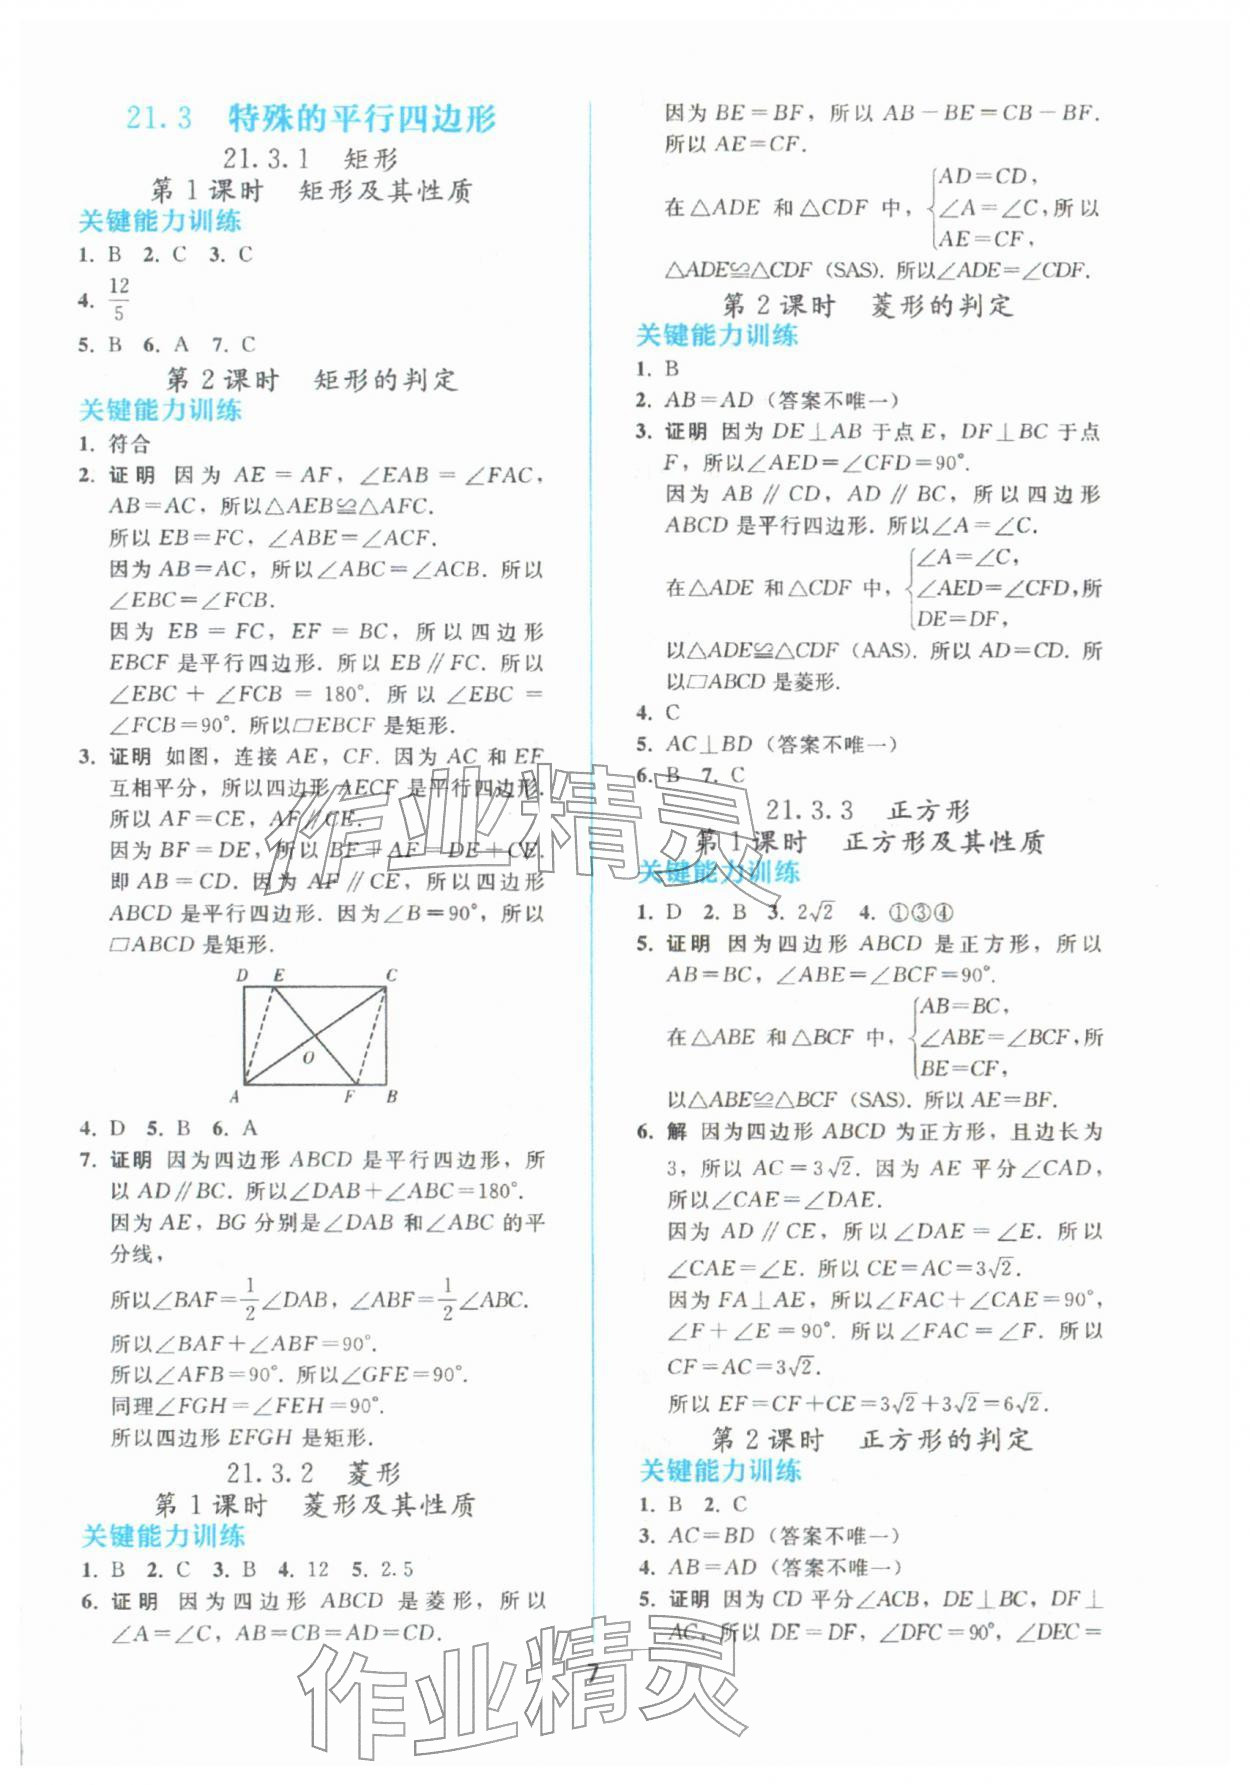 21.3 特殊的平行四边形
21.3.1 矩形
第1课时 矩形及其性质
关键能力训练
1. B 2. C 3. C
4. 12/5
5. B 6. A 7. C
第2课时 矩形的判定
关键能力训练
1. 符合
2. 证明 因为 AE=AF，∠EAB=∠FAC，
AB=AC，所以△AEB≌△AFC.
所以 EB=FC，∠ABE=∠ACF.
因为 AB=AC，所以∠ABC=∠ACB. 所以
∠EBC=∠FCB.
因为 EB=FC，EF=BC，所以四边形
EBCF 是平行四边形. 所以 EB∥FC. 所以
∠EBC+∠FCB=180°. 所以∠EBC=
∠FCB=90°. 所以□EBCF 是矩形.
3. 证明 如图，连接 AE，CF. 因为 AC 和 EF
互相平分，所以四边形 AECF 是平行四边形.
所以 AF=CE，AF∥CE.
因为 BF=DE，所以 BF+AF=DE+CE.
即 AB=CD. 因为 AF∥CE，所以四边形
ABCD 是平行四边形. 因为∠B=90°，所以
□ABCD 是矩形.
D E C
O
A F B
4. D 5. B 6. A
7. 证明 因为四边形 ABCD 是平行四边形，所
以 AD∥BC. 所以∠DAB+∠ABC=180°.
因为 AE，BG 分别是∠DAB 和∠ABC 的平
分线，
所以∠BAF=1/2∠DAB，∠ABF=1/2∠ABC.
所以∠BAF+∠ABF=90°.
所以∠AFB=90°. 所以∠GFE=90°.
同理∠FGH=∠FEH=90°.
所以四边形 EFGH 是矩形.
21.3.2 菱形
第1课时 菱形及其性质
关键能力训练
1. B 2. C 3. B 4. 12 5. 2.5
6. 证明 因为四边形 ABCD 是菱形，所以
∠A=∠C，AB=CB=AD=CD.
因为 BE=BF，所以 AB-BE=CB-BF.
所以 AE=CF.
在△ADE 和△CDF 中，{AD=CD，
∠A=∠C，所以
AE=CF，
△ADE≌△CDF (SAS). 所以∠ADE=∠CDF.
第2课时 菱形的判定
关键能力训练
1. B
2. AB=AD（答案不唯一）
3. 证明 因为 DE⊥AB 于点 E，DF⊥BC 于点
F，所以∠AED=∠CFD=90°.
因为 AB∥CD，AD∥BC，所以四边形
ABCD 是平行四边形. 所以∠A=∠C.
在△ADE 和△CDF 中，{∠A=∠C，
∠AED=∠CFD，所
DE=DF，
以△ADE≌△CDF (AAS). 所以 AD=CD. 所
以□ABCD 是菱形.
4. C
5. AC⊥BD（答案不唯一）
6. B 7. C
21.3.3 正方形
第1课时 正方形及其性质
关键能力训练
1. D 2. B 3. 2√2 4. ①③④
5. 证明 因为四边形 ABCD 是正方形，所以
AB=BC，∠ABE=∠BCF=90°.
在△ABE 和△BCF 中，{AB=BC，
∠ABE=∠BCF，所
BE=CF，
以△ABE≌△BCF (SAS). 所以 AE=BF.
6. 解 因为四边形 ABCD 为正方形，且边长为
3，所以 AC=3√2. 因为 AE 平分∠CAD，
所以∠CAE=∠DAE.
因为 AD∥CE，所以∠DAE=∠E. 所以
∠CAE=∠E. 所以 CE=AC=3√2.
因为 FA⊥AE，所以∠FAC+∠CAE=90°，
∠F+∠E=90°. 所以∠FAC=∠F. 所以
CF=AC=3√2.
所以 EF=CF+CE=3√2+3√2=6√2.
第2课时 正方形的判定
关键能力训练
1. B 2. C
3. AC=BD（答案不唯一）
4. AB=AD（答案不唯一）
5. 证明 因为 CD 平分∠ACB，DE⊥BC，DF⊥
AC，所以 DE=DF，∠DFC=90°，∠DEC=
7
作业精灵
作业精灵